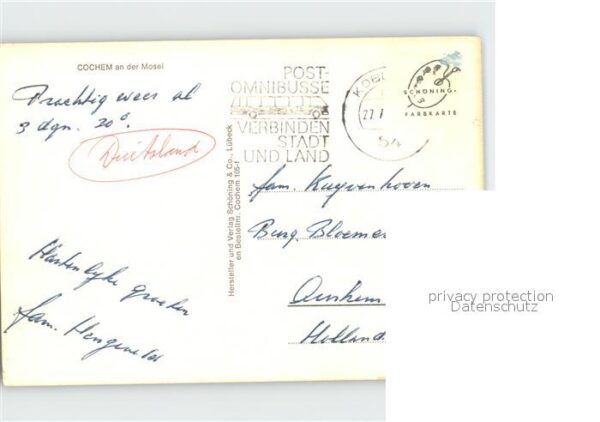 COCHEM an der Mosel
Prachtig weer al
3 dgn. 30°.
Duitsland
Hartenlijke groeten
fam.
Hersteller und Verlag Schöning & Co., Lübeck
en Bestellnr. Cochem 105-I
POST-
OMNIBUSSE
VERBINDEN
STADT
UND LAND
KOB
27.
54
SCHÖNING-
FARBKARTE
fam. Kuyvenhoven
Burg. Bloemer
Arnhem
Holland
privacy protection
Datenschutz